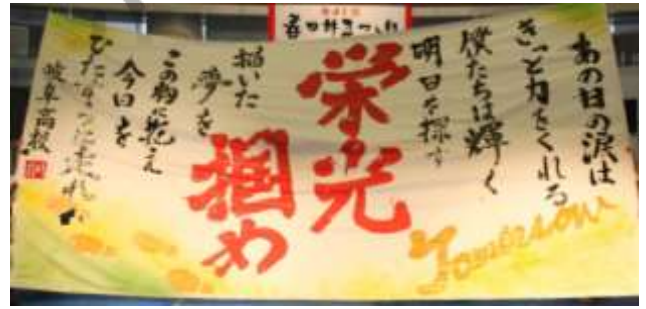 春日井まつり
あの日の涙は
きっと力をくれる
僕たちは輝く
明日を探す
栄光
掴め
描いた
夢を
この胸に抱え
今日を
ひたすらに走れ
岐阜高校
Tomorrow